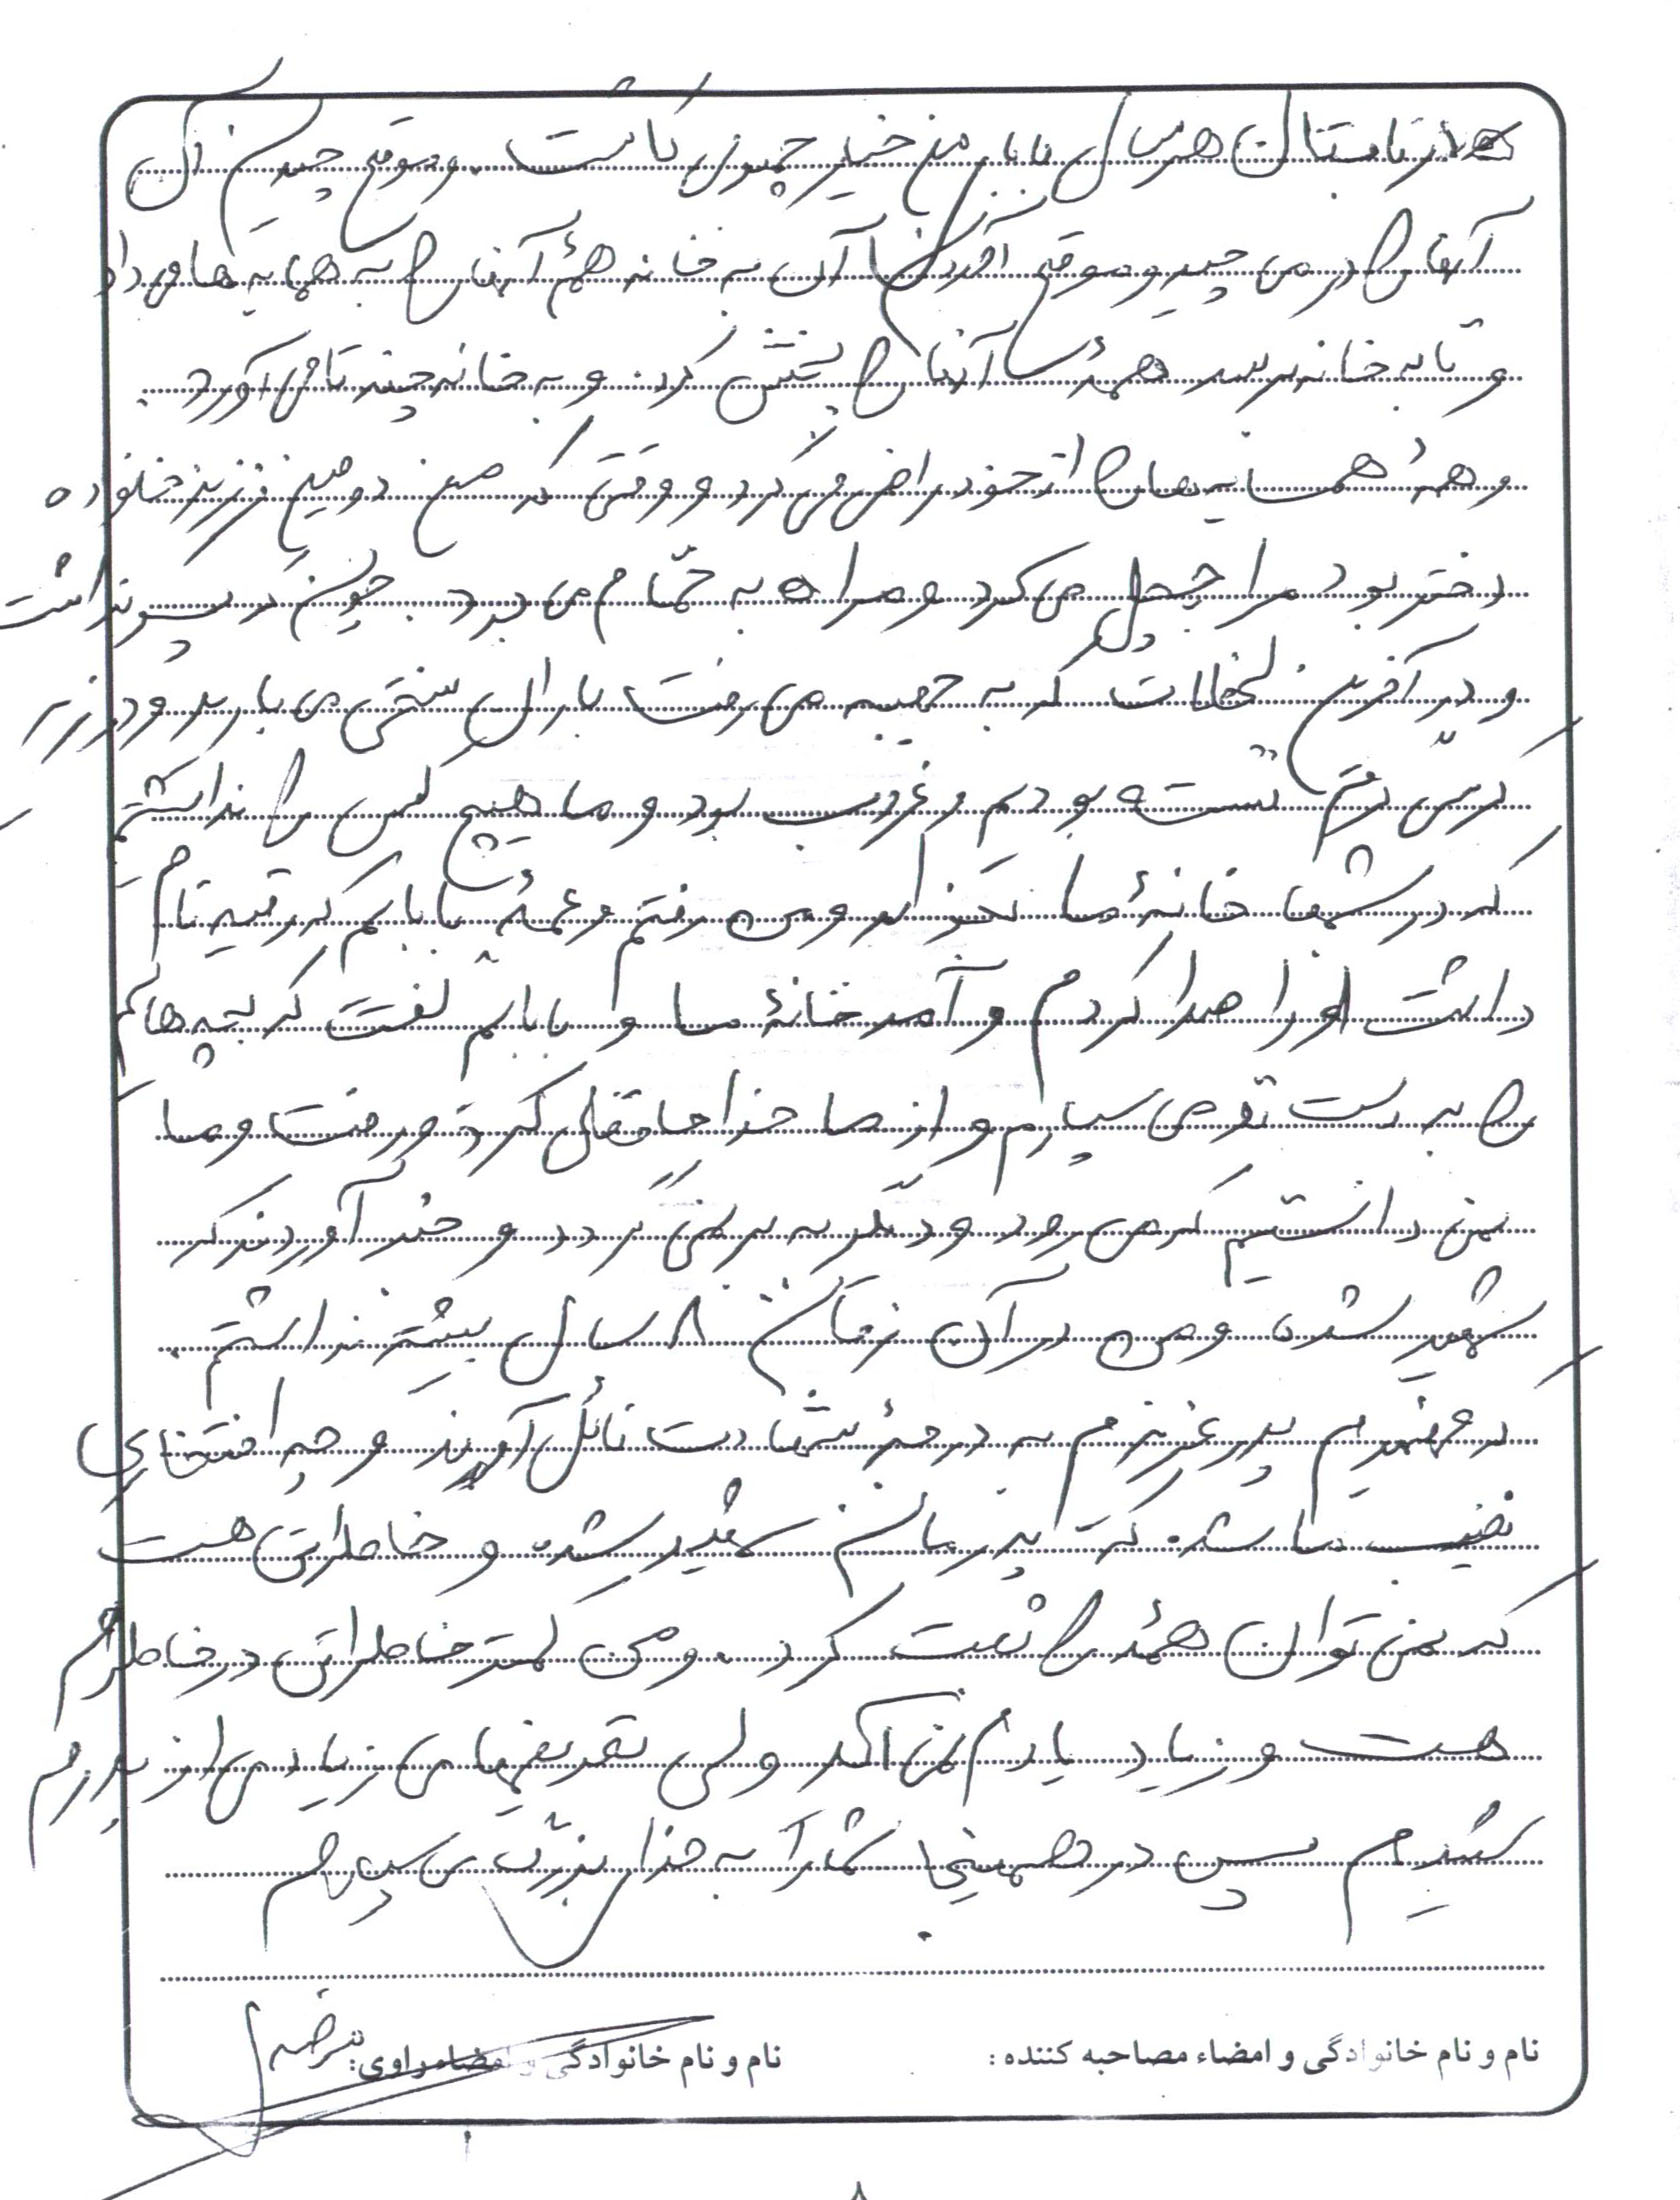 در تابستان هر سال بابای من خیار چمبری کاشت. و موقع چیدن آن
آنها را در می چید و موقع آمدن آن به خانه همهٔ آنها را به همسایه ها می داد
و تا به خانه برسد همهٔ آنها را پخش کرده و به خانه چند تا می آورد.
و همهٔ همسایه های را از خود راضی می کرد و وقتی که من دومین فرزند خانواده
دختر بود مرا بغل می کرد و مرا به حمّام می برد. چون که پسر نداشت
و در آخرین لحظات که به جبهه می رفت باران سختی می بارید و در زیر
کرسی گرم نشسته بودیم و غروب بود و ما هیچ کس را نداشتیم
که در شبها خانهٔ ما بخوابد و من رفتم و عمهٔ بابایم که رقیه نام
داشت او را صدا کردم و آمد خانهٔ ما و بابایم گفت که بچه هایم
را به دست تو می سپارم و از ما خداحافظی کرد و رفت و ما
نمی دانستیم که می رود و دیگر بر نمی گردد و خبر آوردند که
شهید شده و من در آن زمان ۸ سال بیشتر نداشتم.
که فهمیدم پدر عزیزم به درجهٔ شهادت نائل آمدند و چه افتخاری
نصیب ما شده که پدرمان شهید شده و خاطراتی هست
که نمی توان همه را ثبت کرد. و من کمتر خاطراتی در خاطرم
هست و زیاد یادم نمی آید ولی تعریفهای زیادی از پدرم
شنیدم پس در همینجا شما را به خدای بزرگ می سپارم
نام و نام خانوادگی و امضاء مصاحبه کننده:
نام و نام خانوادگی و امضاء راوی: مرضیه
۸